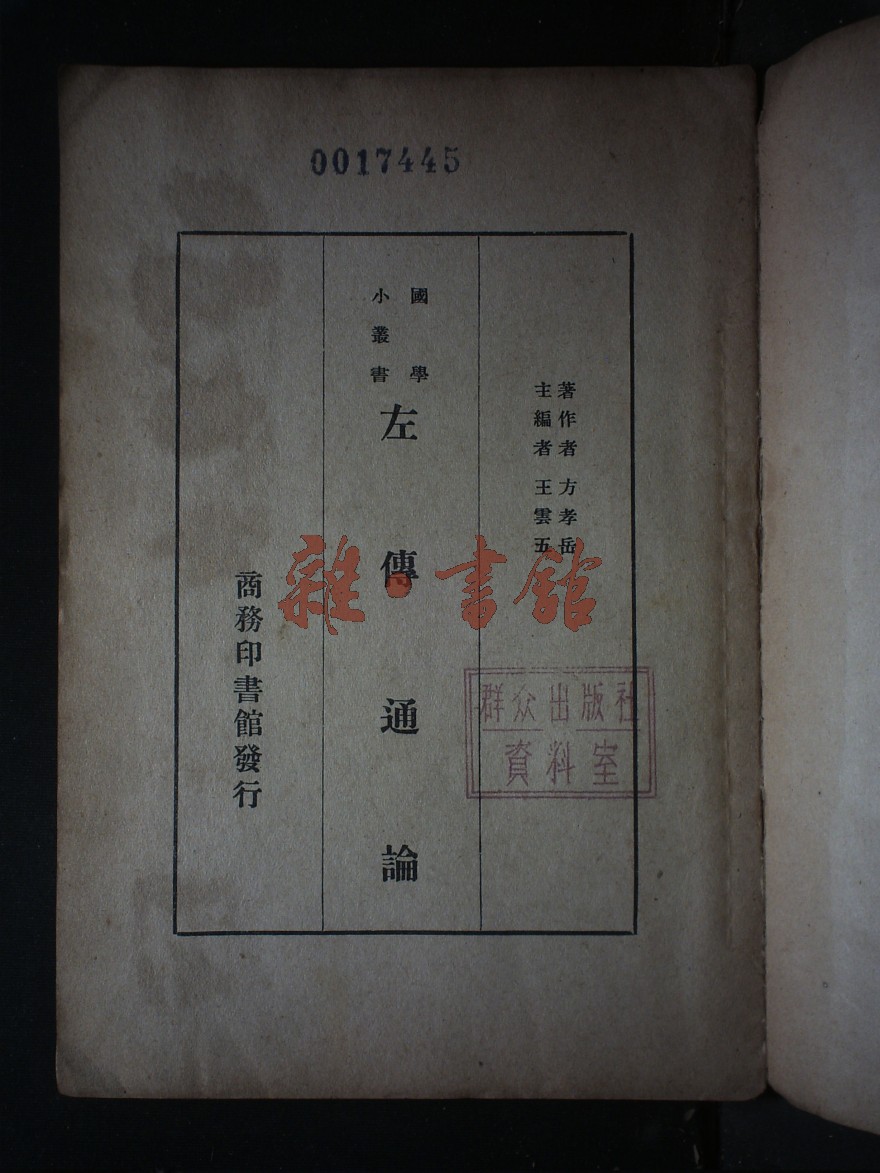 0017445
著作者 方孝岳
主編者 王雲五
國學
小叢書
左傳通論
商務印書館發行
雜·書館
群众出版社
資料室